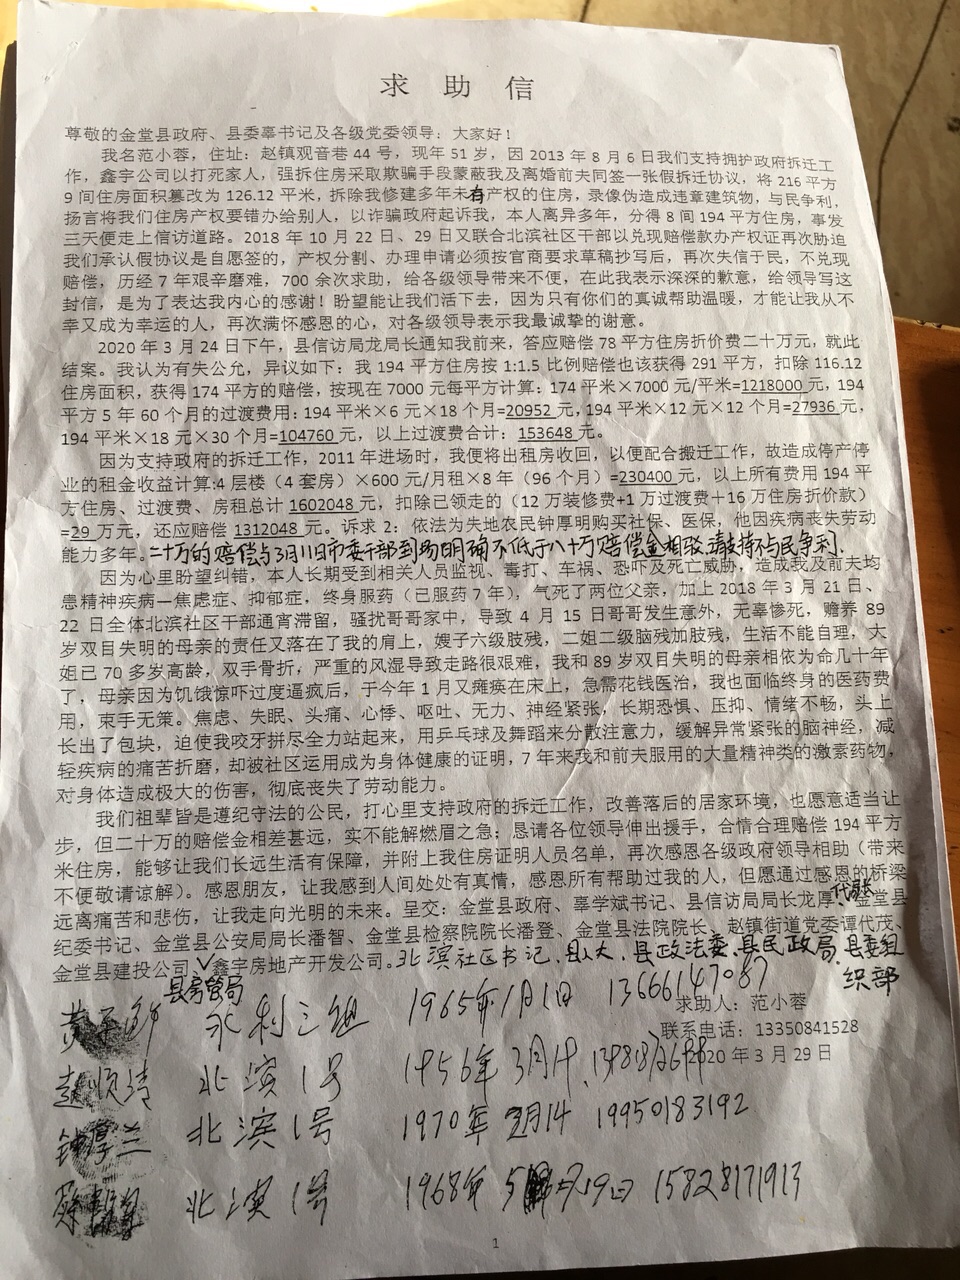 求助信
尊敬的金堂县政府、县委辜书记及各级党委领导：大家好！
我名范小蓉，住址：赵镇观音巷 44 号，现年 51 岁，因 2013 年 8 月 6 日我们支持拥护政府拆迁工
作，鑫宇公司以打死家人，强拆住房采取欺骗手段蒙蔽我及离婚前夫同签一张假拆迁协议，将 216 平方
9 间住房面积篡改为 126.12 平米，拆除我修建多年未有产权的住房，录像伪造成违章建筑物，与民争利，
扬言将我们住房产权要错办给别人，以诈骗政府起诉我，本人离异多年，分得 8 间 194 平方住房，事发
三天便走上信访道路。2018 年 10 月 22 日、29 日又联合北滨社区干部以兑现赔偿款办产权证再次胁迫
我们承认假协议是自愿签的，产权分割、办理申请必须按官商要求草稿抄写后，再次失信于民，不兑现
赔偿，历经 7 年艰辛磨难，700 余次求助，给各级领导带来不便，在此我表示深深的歉意，给领导写这
封信，是为了表达我内心的感谢！盼望能让我们活下去，因为只有你们的真诚帮助温暖，才能让我从不
幸又成为幸运的人，再次满怀感恩的心，对各级领导表示我最诚挚的谢意。
2020 年 3 月 24 日下午，县信访局龙局长通知我前来，答应赔偿 78 平方住房折价费二十万元，就此
结案。我认为有失公允，异议如下：我 194 平方住房按 1:1.5 比例赔偿也该获得 291 平方，扣除 116.12
住房面积，获得 174 平方的赔偿，按现在 7000 元每平方计算：174 平米×7000 元/平米=1218000 元，194
平方 5 年 60 个月的过渡费用：194 平米×6 元×18 个月=20952 元，194 平米×12 元×12 个月=27936 元，
194 平米×18 元×30 个月=104760 元，以上过渡费合计：153648 元。
因为支持政府的拆迁工作，2011 年进场时，我便将出租房收回，以便配合搬迁工作，故造成停产停
业的租金收益计算:4 层楼（4 套房）×600 元/月租×8 年（96 个月）=230400 元，以上所有费用 194 平
方住房、过渡费、房租总计 1602048 元，扣除已领走的（12 万装修费+1 万过渡费+16 万住房折价款）
=29 万元，还应赔偿 1312048 元。诉求 2：依法为失地农民钟厚明购买社保、医保，他因疾病丧失劳动
能力多年。二十万的赔偿与3月11日市委干部到场明确不低于八十万赔偿金相驳,请支持不与民争利.
因为心里盼望纠错，本人长期受到相关人员监视、毒打、车祸、恐吓及死亡威胁，造成我及前夫均
患精神疾病—焦虑症、抑郁症，终身服药（已服药 7 年），气死了两位父亲，加上 2018 年 3 月 21 日、
22 日全体北滨社区干部通宵滞留，骚扰哥哥家中，导致 4 月 15 日哥哥发生意外，无辜惨死，赡养 89
岁双目失明的母亲的责任又落在了我的肩上，嫂子六级肢残，二姐二级脑残加肢残，生活不能自理，大
姐已 70 多岁高龄，双手骨折，严重的风湿导致走路很艰难，我和 89 岁双目失明的母亲相依为命几十年
了，母亲因为饥饿惊吓过度逼疯后，于今年 1 月又瘫痪在床上，急需花钱医治，我也面临终身的医药费
用，束手无策。焦虑、失眠、头痛、心悸、呕吐、无力、神经紧张，长期恐惧、压抑、情绪不畅，头上
长出了包块，迫使我咬牙拼尽全力站起来，用乒乓球及舞蹈来分散注意力，缓解异常紧张的脑神经，减
轻疾病的痛苦折磨，却被社区运用成为身体健康的证明，7 年来我和前夫服用的大量精神类的激素药物，
对身体造成极大的伤害，彻底丧失了劳动能力。
我们祖辈皆是遵纪守法的公民，打心里支持政府的拆迁工作，改善落后的居家环境，也愿意适当让
步，但二十万的赔偿金相差甚远，实不能解燃眉之急；恳请各位领导伸出援手，合情合理赔偿 194 平方
米住房，能够让我们长远生活有保障，并附上我住房证明人员名单，再次感恩各级政府领导相助（带来
不便敬请谅解）。感恩朋友，让我感到人间处处有真情，感恩所有帮助过我的人，但愿通过感恩的桥梁
远离痛苦和悲伤，让我走向光明的未来。呈交：金堂县政府、辜学斌书记、县信访局局长龙厚、金堂县
纪委书记、金堂县公安局局长潘智、金堂县检察院院长潘登、金堂县法院院长、赵镇街道党委谭代茂、
金堂县建投公司、鑫宇房地产开发公司.北滨社区书记.县人大.县政法委.县民政局.县委组
织部
县房管局
永利三组 1965年1月1日 13666147087
求助人：范小蓉
联系电话：13350841528
2020 年 3 月 29 日
赵顺清 北滨1号 1956年3月
钟厚兰 北滨1号 1970年2月14 19950183192
北滨1号 1968年5月19日 15828171913
1